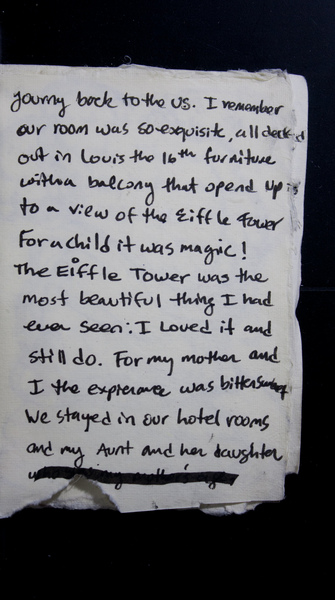 journy back to the US. I remember
our room was so exquisite, all deck'd
out in Louis the 16th furniture
with a balcony that opend up
to a view of the Eiffle tower
For a child it was magic!
The Eiffle Tower was the
most beautiful thing I had
ever seen. I Loved it and
still do. For my mother and
I the experience was bittersweet
We stayed in our hotel rooms
and my Aunt and her daughter